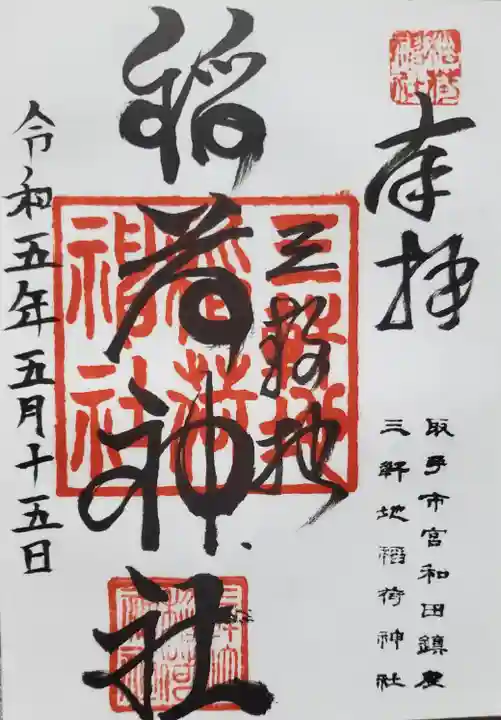 奉拝
取手市宮和田鎮座
三軒地稲荷神社
三軒地
稲荷神社
令和五年五月十五日
三軒地
稲荷
神社